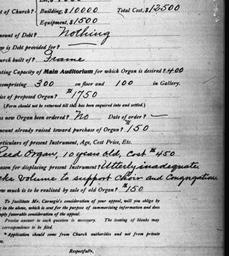 of Church? Building, $10000 Total Cost, $12500
Equipment, $1500
Amount of Debt? Nothing
is Debt provided for?
Church built of? Frame
ating Capacity of Main Auditorium for which Organ is desired? 400
comprising 300 on floor and 100 in Gallery.
ice of proposed Organ? $1750
(Form should not be returned till this has been inquired into and settled.)
as new Organ been ordered? No Date of order?
Amount already raised toward purchase of Organ? $150
Particulars of present Instrument, Age, Cost Price, Etc.
Reed Organ, 10 years old, Cost $450
Reason for displacing present Instrument? Utterly inadequate
cks volume to support Choir and Congregation
ow much is to be realized by sale of old Organ? $150
To facilitate Mr. Carnegie's consideration of your appeal, will you oblige by
in the above, which is sent for the purpose of summarizing information and thus
favorable consideration of the appeal.
Precise answer to each question is necessary. The issuing of blanks may
correspondence to be filed.
* Application should come from Church authorities and not from private
Respectfully,